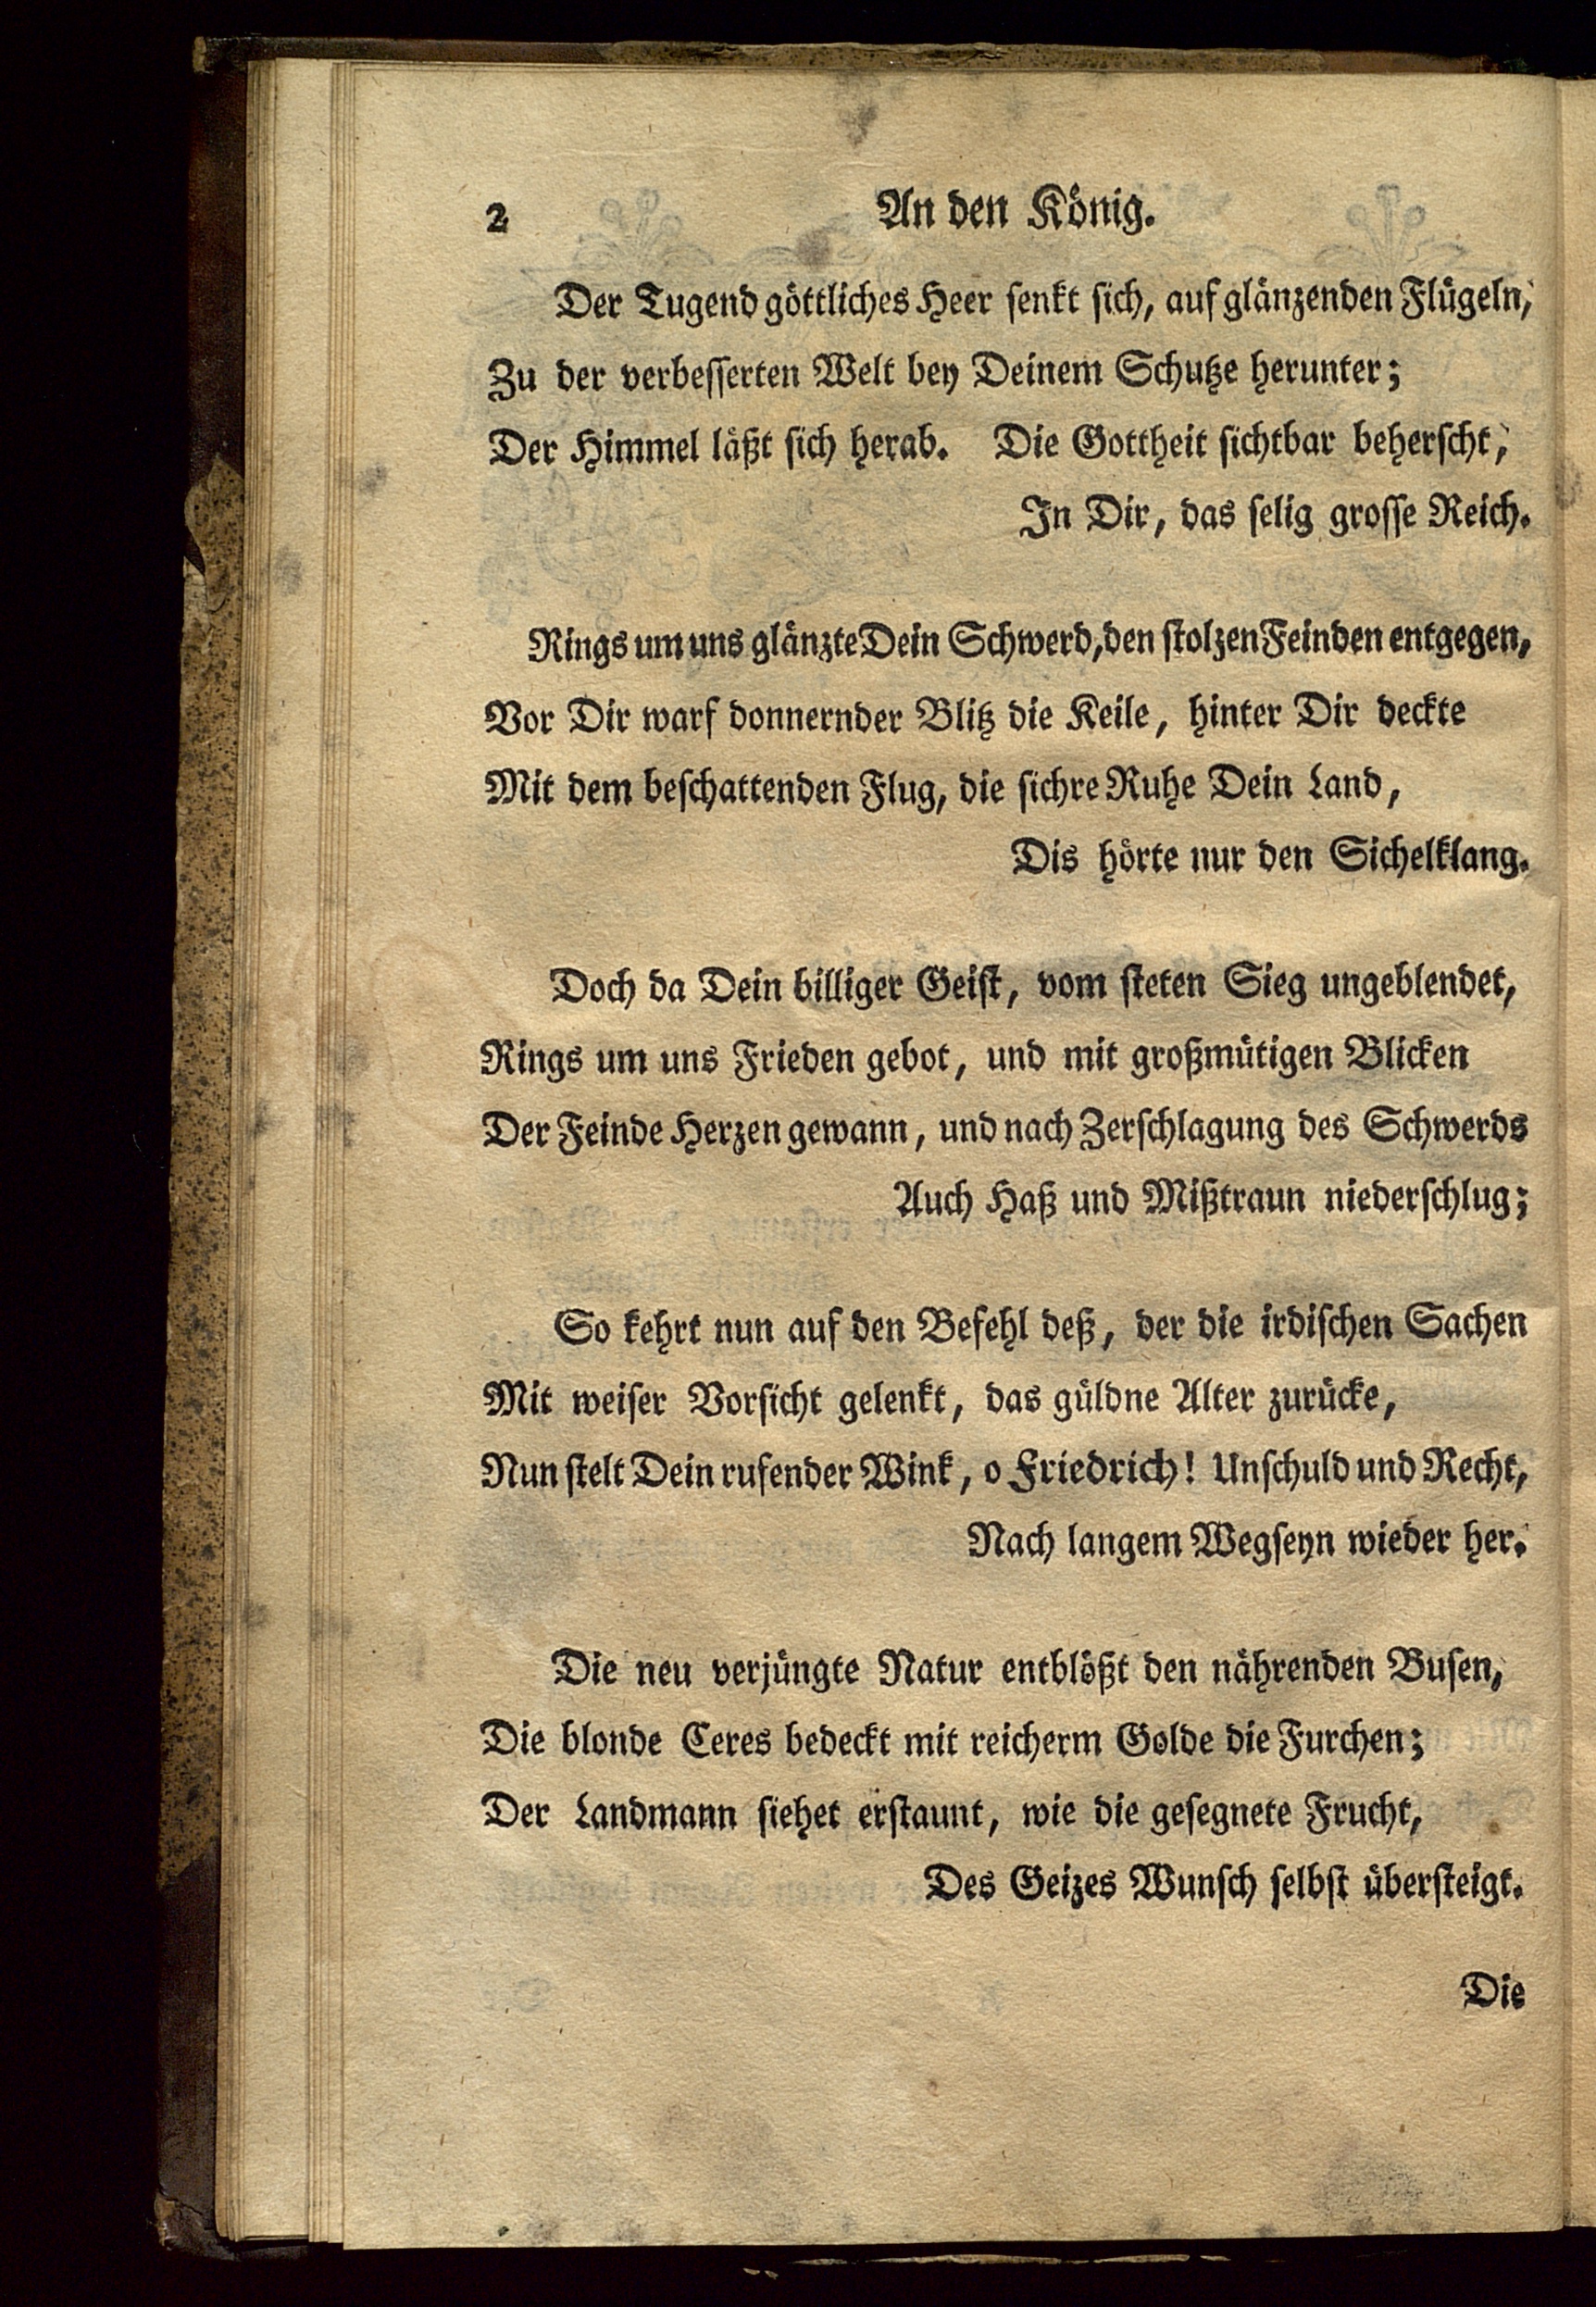 2
An den König.
Der Tugend göttliches Heer senkt sich, auf glänzenden Flügeln,
Zu der verbesserten Welt bey Deinem Schutze herunter;
Der Himmel läßt sich herab. Die Gottheit sichtbar beherscht,
In Dir, das selig grosse Reich.
Rings um uns glänzte Dein Schwerd, den stolzen Feinden entgegen,
Vor Dir warf donnernder Blitz die Keile, hinter Dir deckte
Mit dem beschattenden Flug, die sichre Ruhe Dein Land,
Dis hörte nur den Sichelklang.
Doch da Dein billiger Geist, vom steten Sieg ungeblendet,
Rings um uns Frieden gebot, und mit großmütigen Blicken
Der Feinde Herzen gewann, und nach Zerschlagung des Schwerds
Auch Haß und Mißtraun niederschlug;
So kehrt nun auf den Befehl deß, der die irdischen Sachen
Mit weiser Vorsicht gelenkt, das güldne Alter zurücke,
Nun stelt Dein rufender Wink, o Friedrich! Unschuld und Recht,
Nach langem Wegseyn wieder her.
Die neu verjüngte Natur entblößt den nährenden Busen,
Die blonde Ceres bedeckt mit reicherm Golde die Furchen;
Der Landmann siehet erstaunt, wie die gesegnete Frucht,
Des Geizes Wunsch selbst übersteigt.
Die